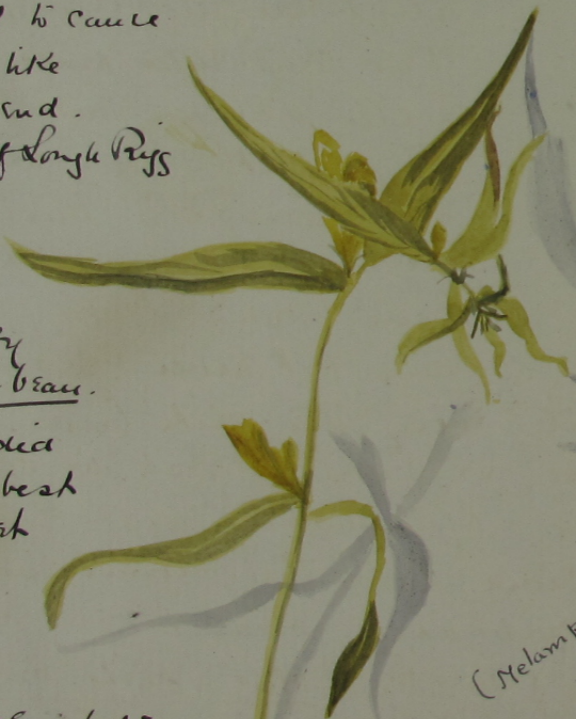 to cause
like
and.
of Lough Rigg
by
bean.
did
best
(Melam